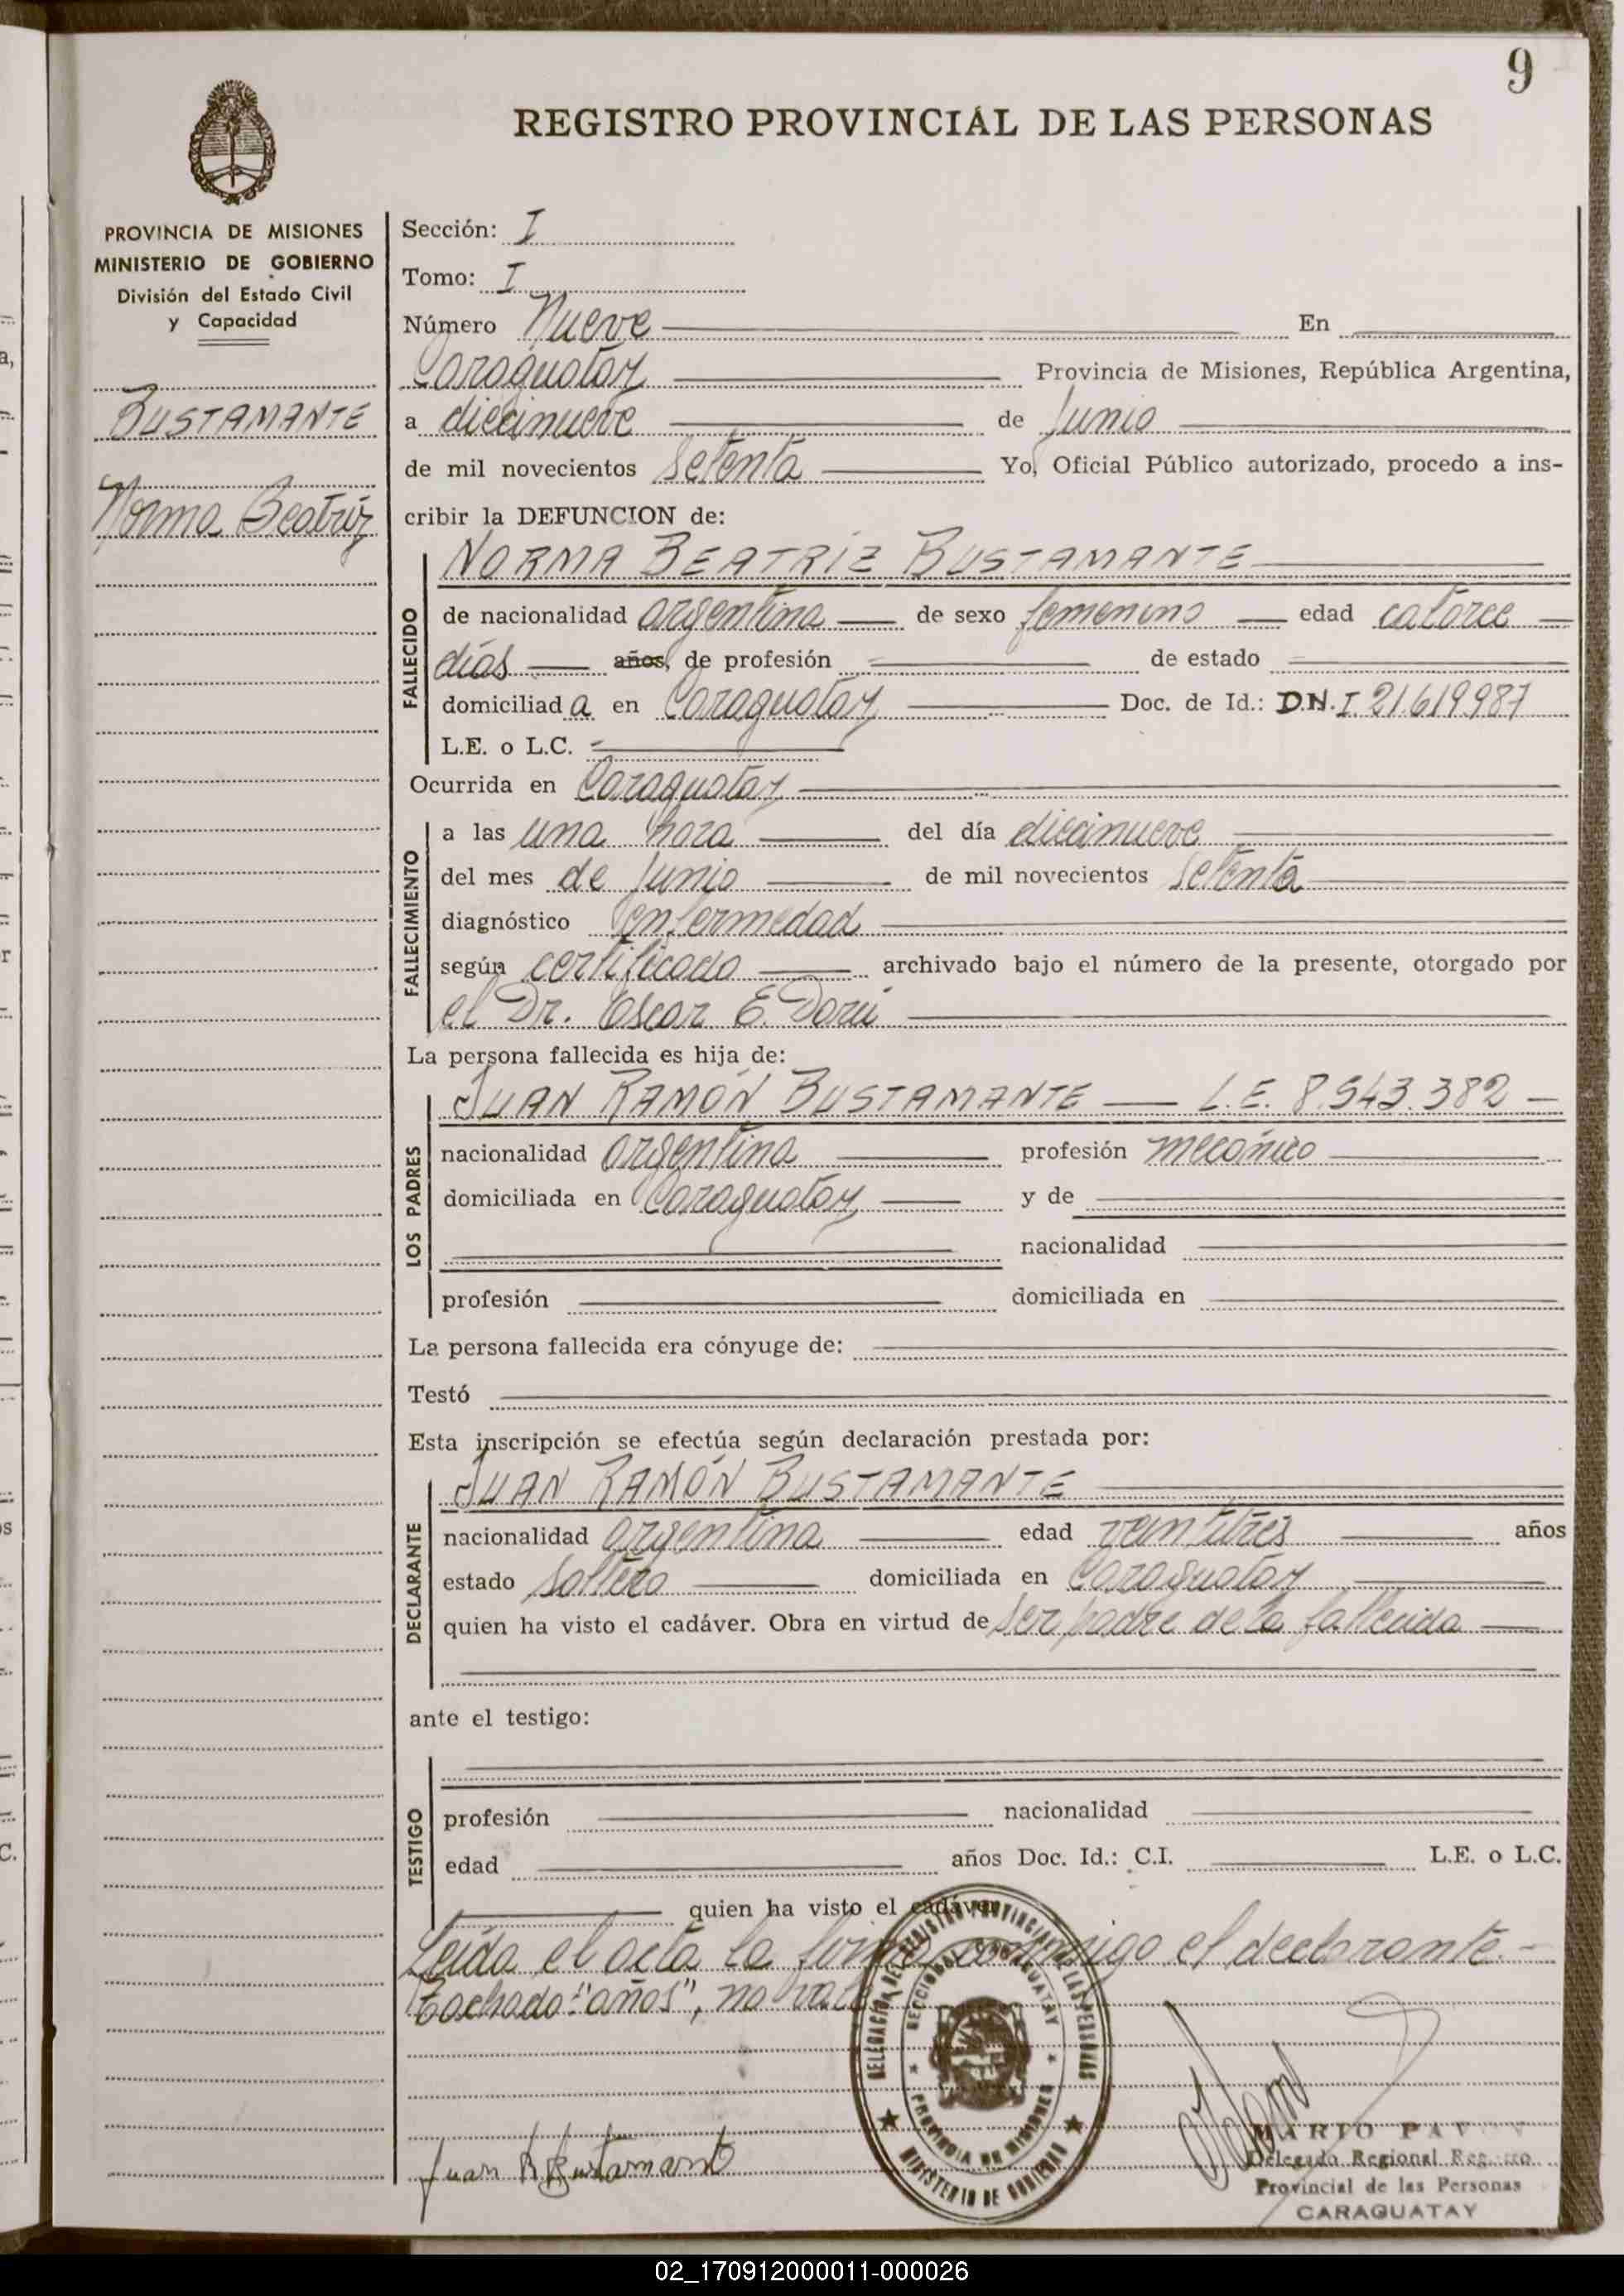 9
REGISTRO PROVINCIAL DE LAS PERSONAS
PROVINCIA DE MISIONES
MINISTERIO DE GOBIERNO
División del Estado Civil
y Capacidad
BUSTAMANTE
Norma Beatriz
Sección: I
Tomo: I
Número Nueve En
Caraguatay Provincia de Misiones, República Argentina,
a diecinueve de Junio
de mil novecientos setenta Yo, Oficial Público autorizado, procedo a ins-
cribir la DEFUNCION de:
FALLECIDO
NORMA BEATRIZ BUSTAMANTE
de nacionalidad argentina de sexo femenino edad catorce
días años, de profesión de estado
domiciliad a en Caraguatay Doc. de Id.: D.N.I. 21.619.987
L.E. o L.C.
Ocurrida en Caraguatay
FALLECIMIENTO
a las una hora del día diecinueve
del mes de Junio de mil novecientos setenta
diagnóstico enfermedad
según certificado archivado bajo el número de la presente, otorgado por
el Dr. Oscar E.
La persona fallecida es hija de:
LOS PADRES
JUAN RAMÓN BUSTAMANTE L.E. 8.543.382
nacionalidad argentina profesión mecánico
domiciliada en Caraguatay y de
nacionalidad
profesión domiciliada en
La persona fallecida era cónyuge de:
Testó
Esta inscripción se efectúa según declaración prestada por:
DECLARANTE
JUAN RAMÓN BUSTAMANTE
nacionalidad argentina edad veintitres años
estado soltero domiciliada en Caraguatay
quien ha visto el cadáver. Obra en virtud de ser padre de la fallecida
ante el testigo:
TESTIGO
profesión nacionalidad
edad años Doc. Id.: C.I. L.E. o L.C.
quien ha visto el cadáver
Leída el acta la firma conmigo el declarante.-
Tachado: "años", no vale
DELEGACION DEL REGISTRO PROVINCIAL DE LAS PERSONAS
SECCIONAL CARAGUATAY
PROVINCIA DE MISIONES
MINISTERIO DE GOBIERNO
Juan R Bustamante
MARIO
Delegado Regional Registro
Provincial de las Personas
CARAGUATAY
02_170912000011-000026